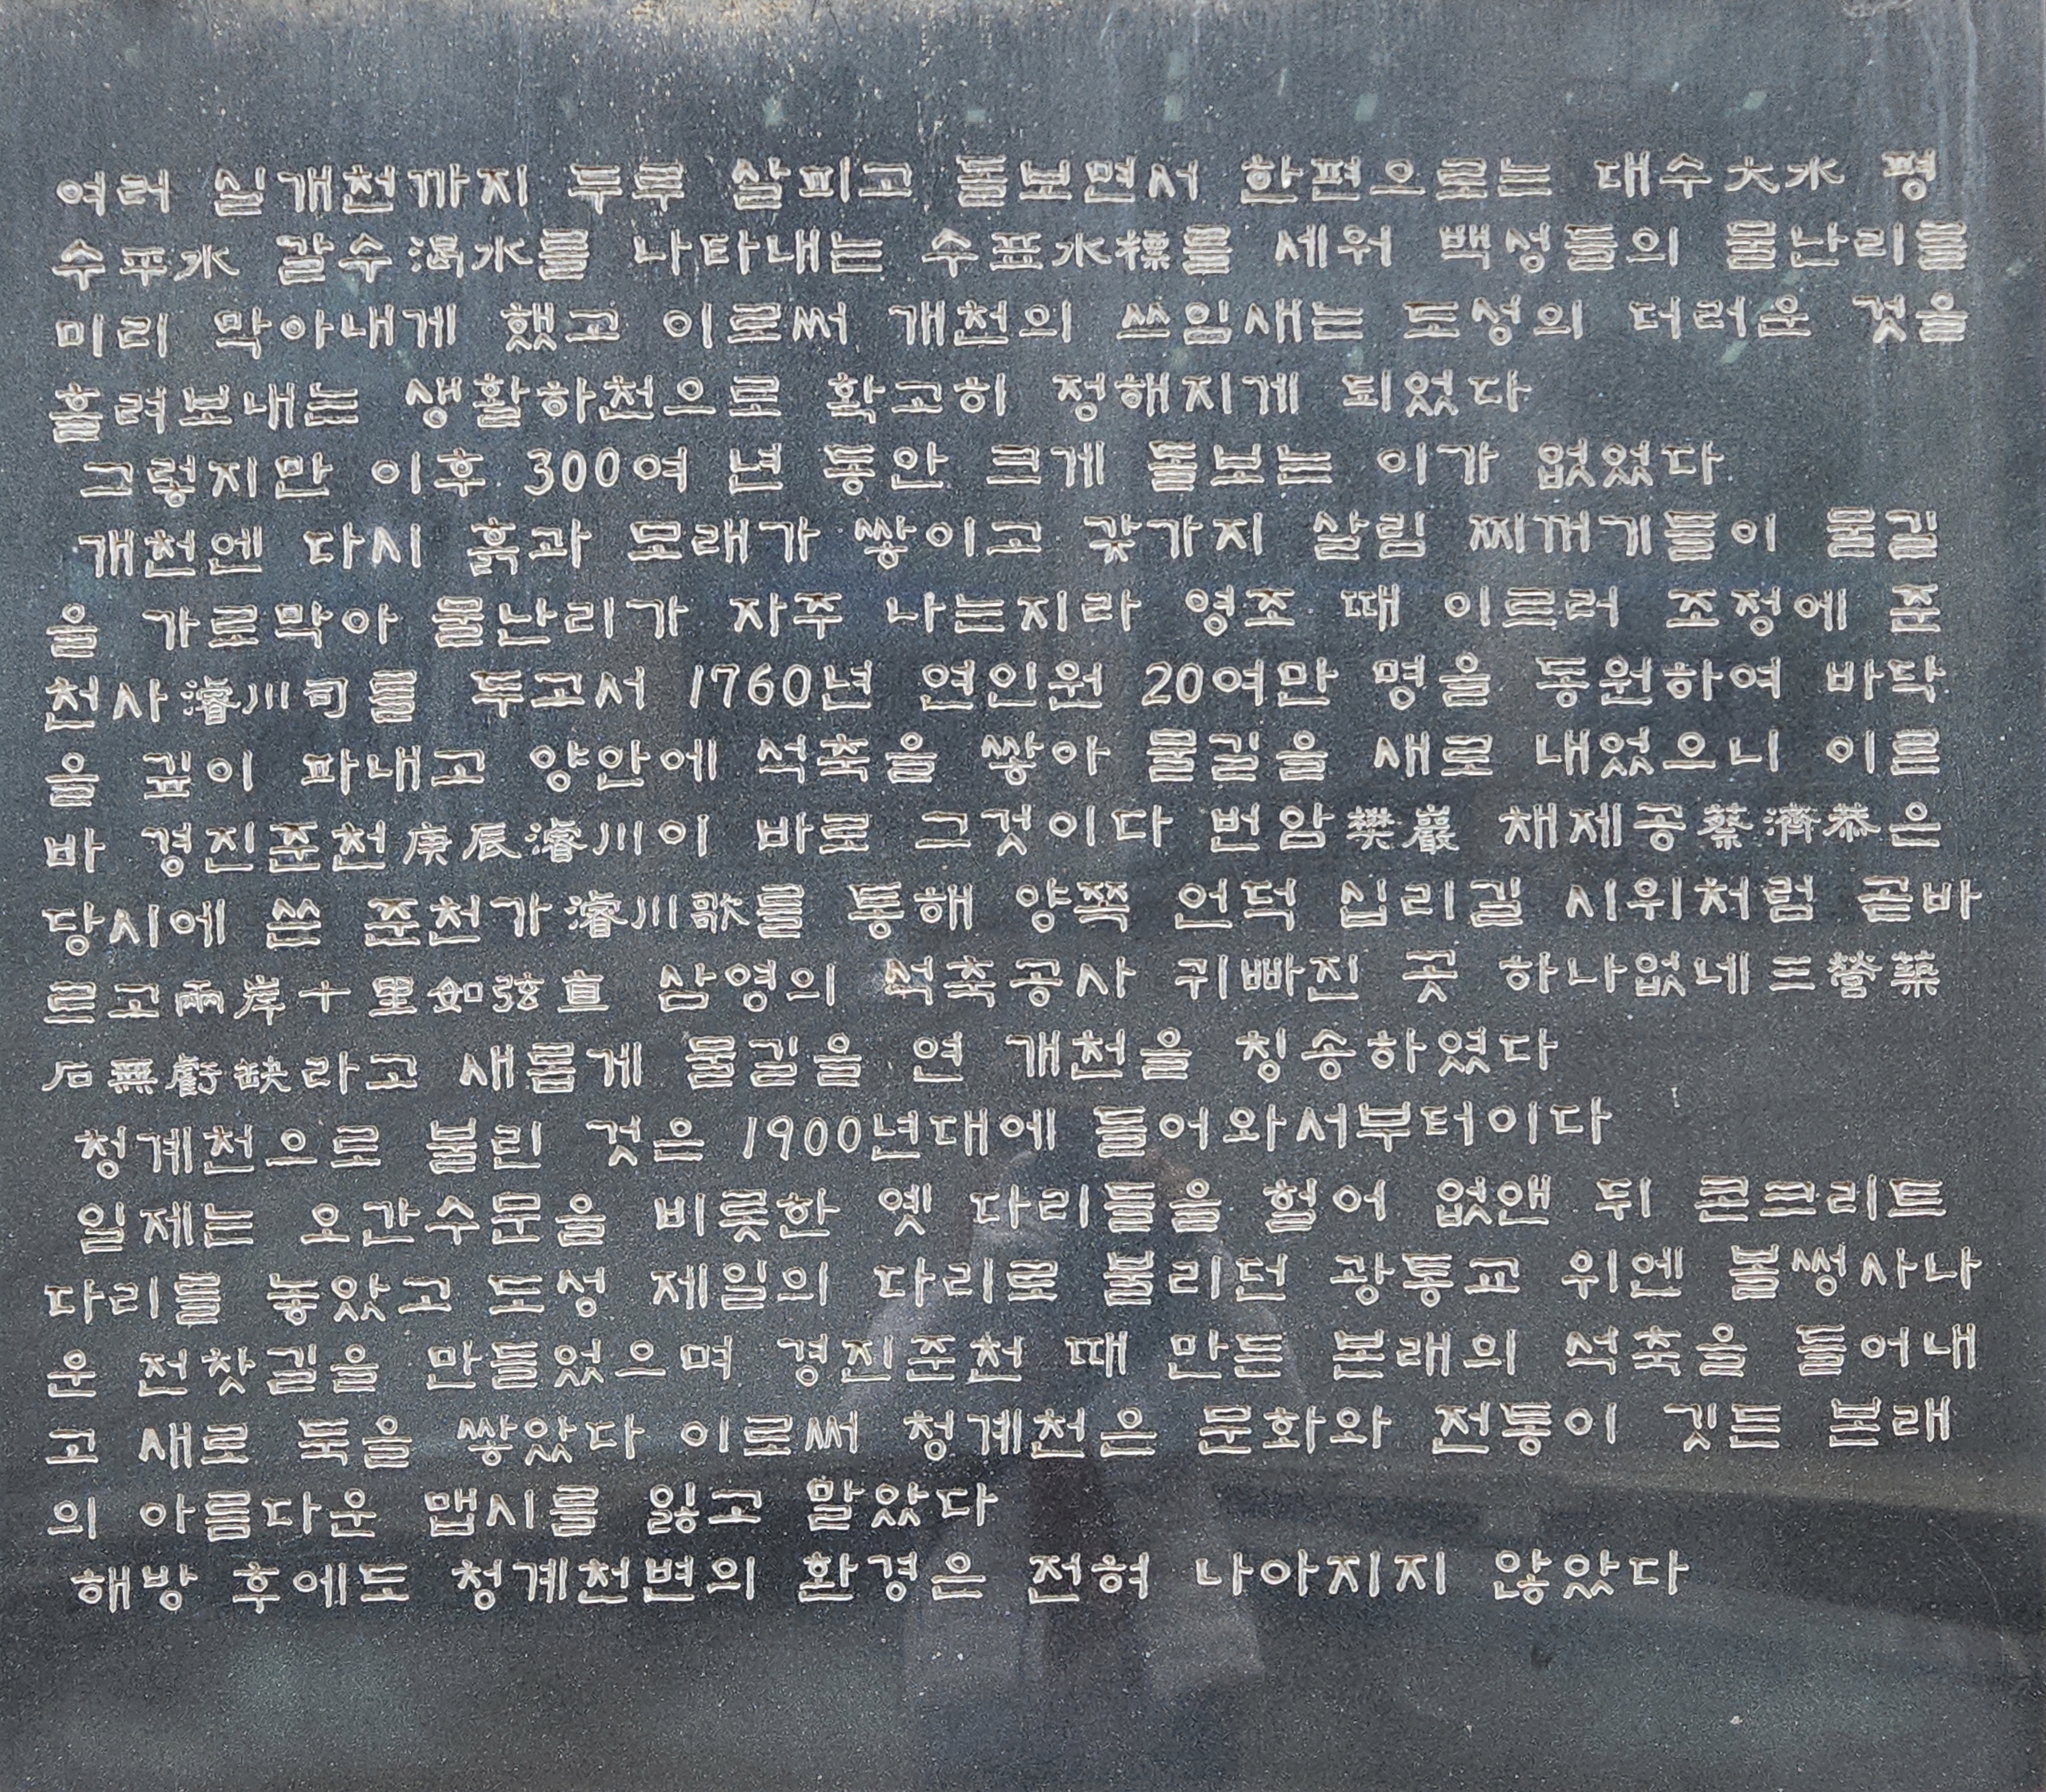 여러 실개천까지 두루 살피고 돌보면서 한편으로는 대수大水 평
수平水 갈수渴水를 나타내는 수표水標를 세워 백성들의 물난리를
미리 막아내게 했고 이로써 개천의 쓰임새는 도성의 더러운 것을
흘려보내는 생활하천으로 확고히 정해지게 되었다
그렇지만 이후 300여 년 동안 크게 돌보는 이가 없었다
개천엔 다시 흙과 모래가 쌓이고 갖가지 살림 찌꺼기들이 물길
을 가로막아 물난리가 자주 나는지라 영조 때 이르러 조정에 준
천사濬川司를 두고서 1760년 연인원 20여만 명을 동원하여 바닥
을 깊이 파내고 양안에 석축을 쌓아 물길을 새로 내었으니 이른
바 경진준천庚辰濬川이 바로 그것이다 번암樊巖 채제공蔡濟恭은
당시에 쓴 준천가濬川歌를 통해 양쪽 언덕 십리길 시위처럼 곧바
르고兩岸十里如弦直 삼영의 석축공사 귀빠진 곳 하나없네三營築
石無虧缺라고 새롭게 물길을 연 개천을 칭송하였다
청계천으로 불린 것은 1900년대에 들어와서부터이다
일제는 오간수문을 비롯한 옛 다리들을 헐어 없앤 뒤 콘크리트
다리를 놓았고 도성 제일의 다리로 불리던 광통교 위엔 볼썽사나
운 전찻길을 만들었으며 경진준천 때 만든 본래의 석축을 들어내
고 새로 둑을 쌓았다 이로써 청계천은 문화와 전통이 깃든 본래
의 아름다운 맵시를 잃고 말았다
해방 후에도 청계천변의 환경은 전혀 나아지지 않았다